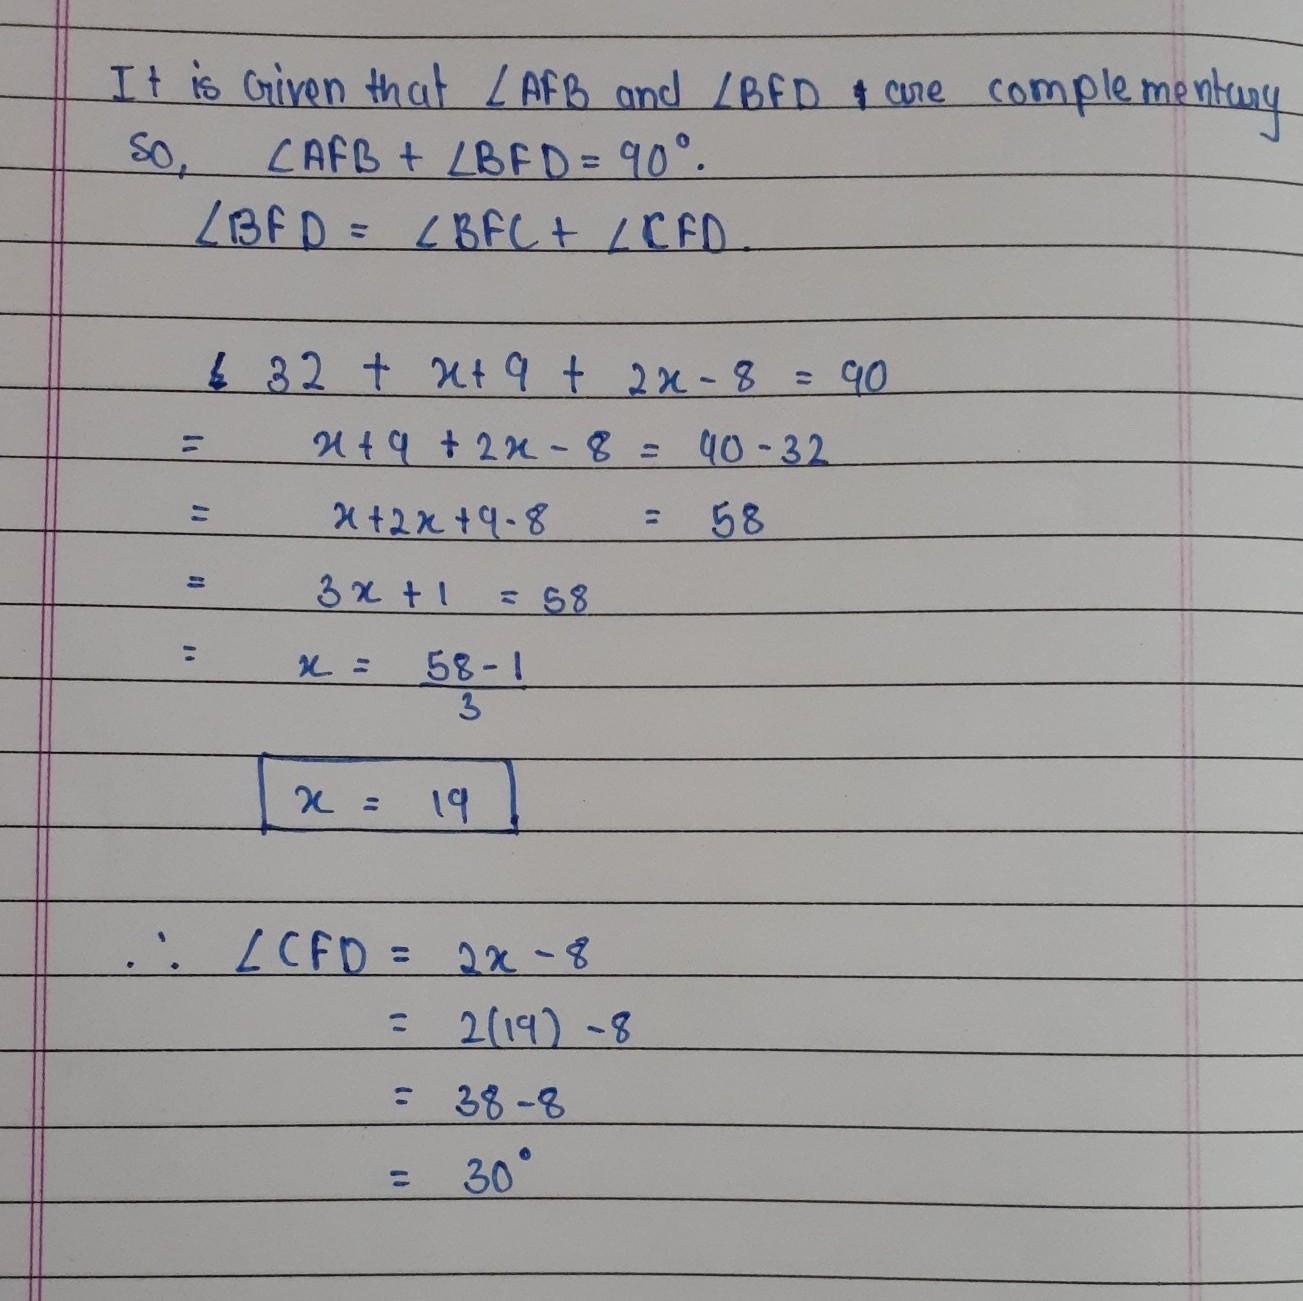 It is Given that ∠AFB and ∠BFD are complementary
so, ∠AFB + ∠BFD = 90°.
∠BFD = ∠BFC + ∠CFD.
32 + x+9 + 2x-8 = 90
= x+9 +2x-8 = 90-32
= x+2x+9-8 = 58
= 3x+1 = 58
= x = 58-1
3
x = 19
∴ ∠CFD = 2x-8
= 2(19) -8
= 38-8
= 30°